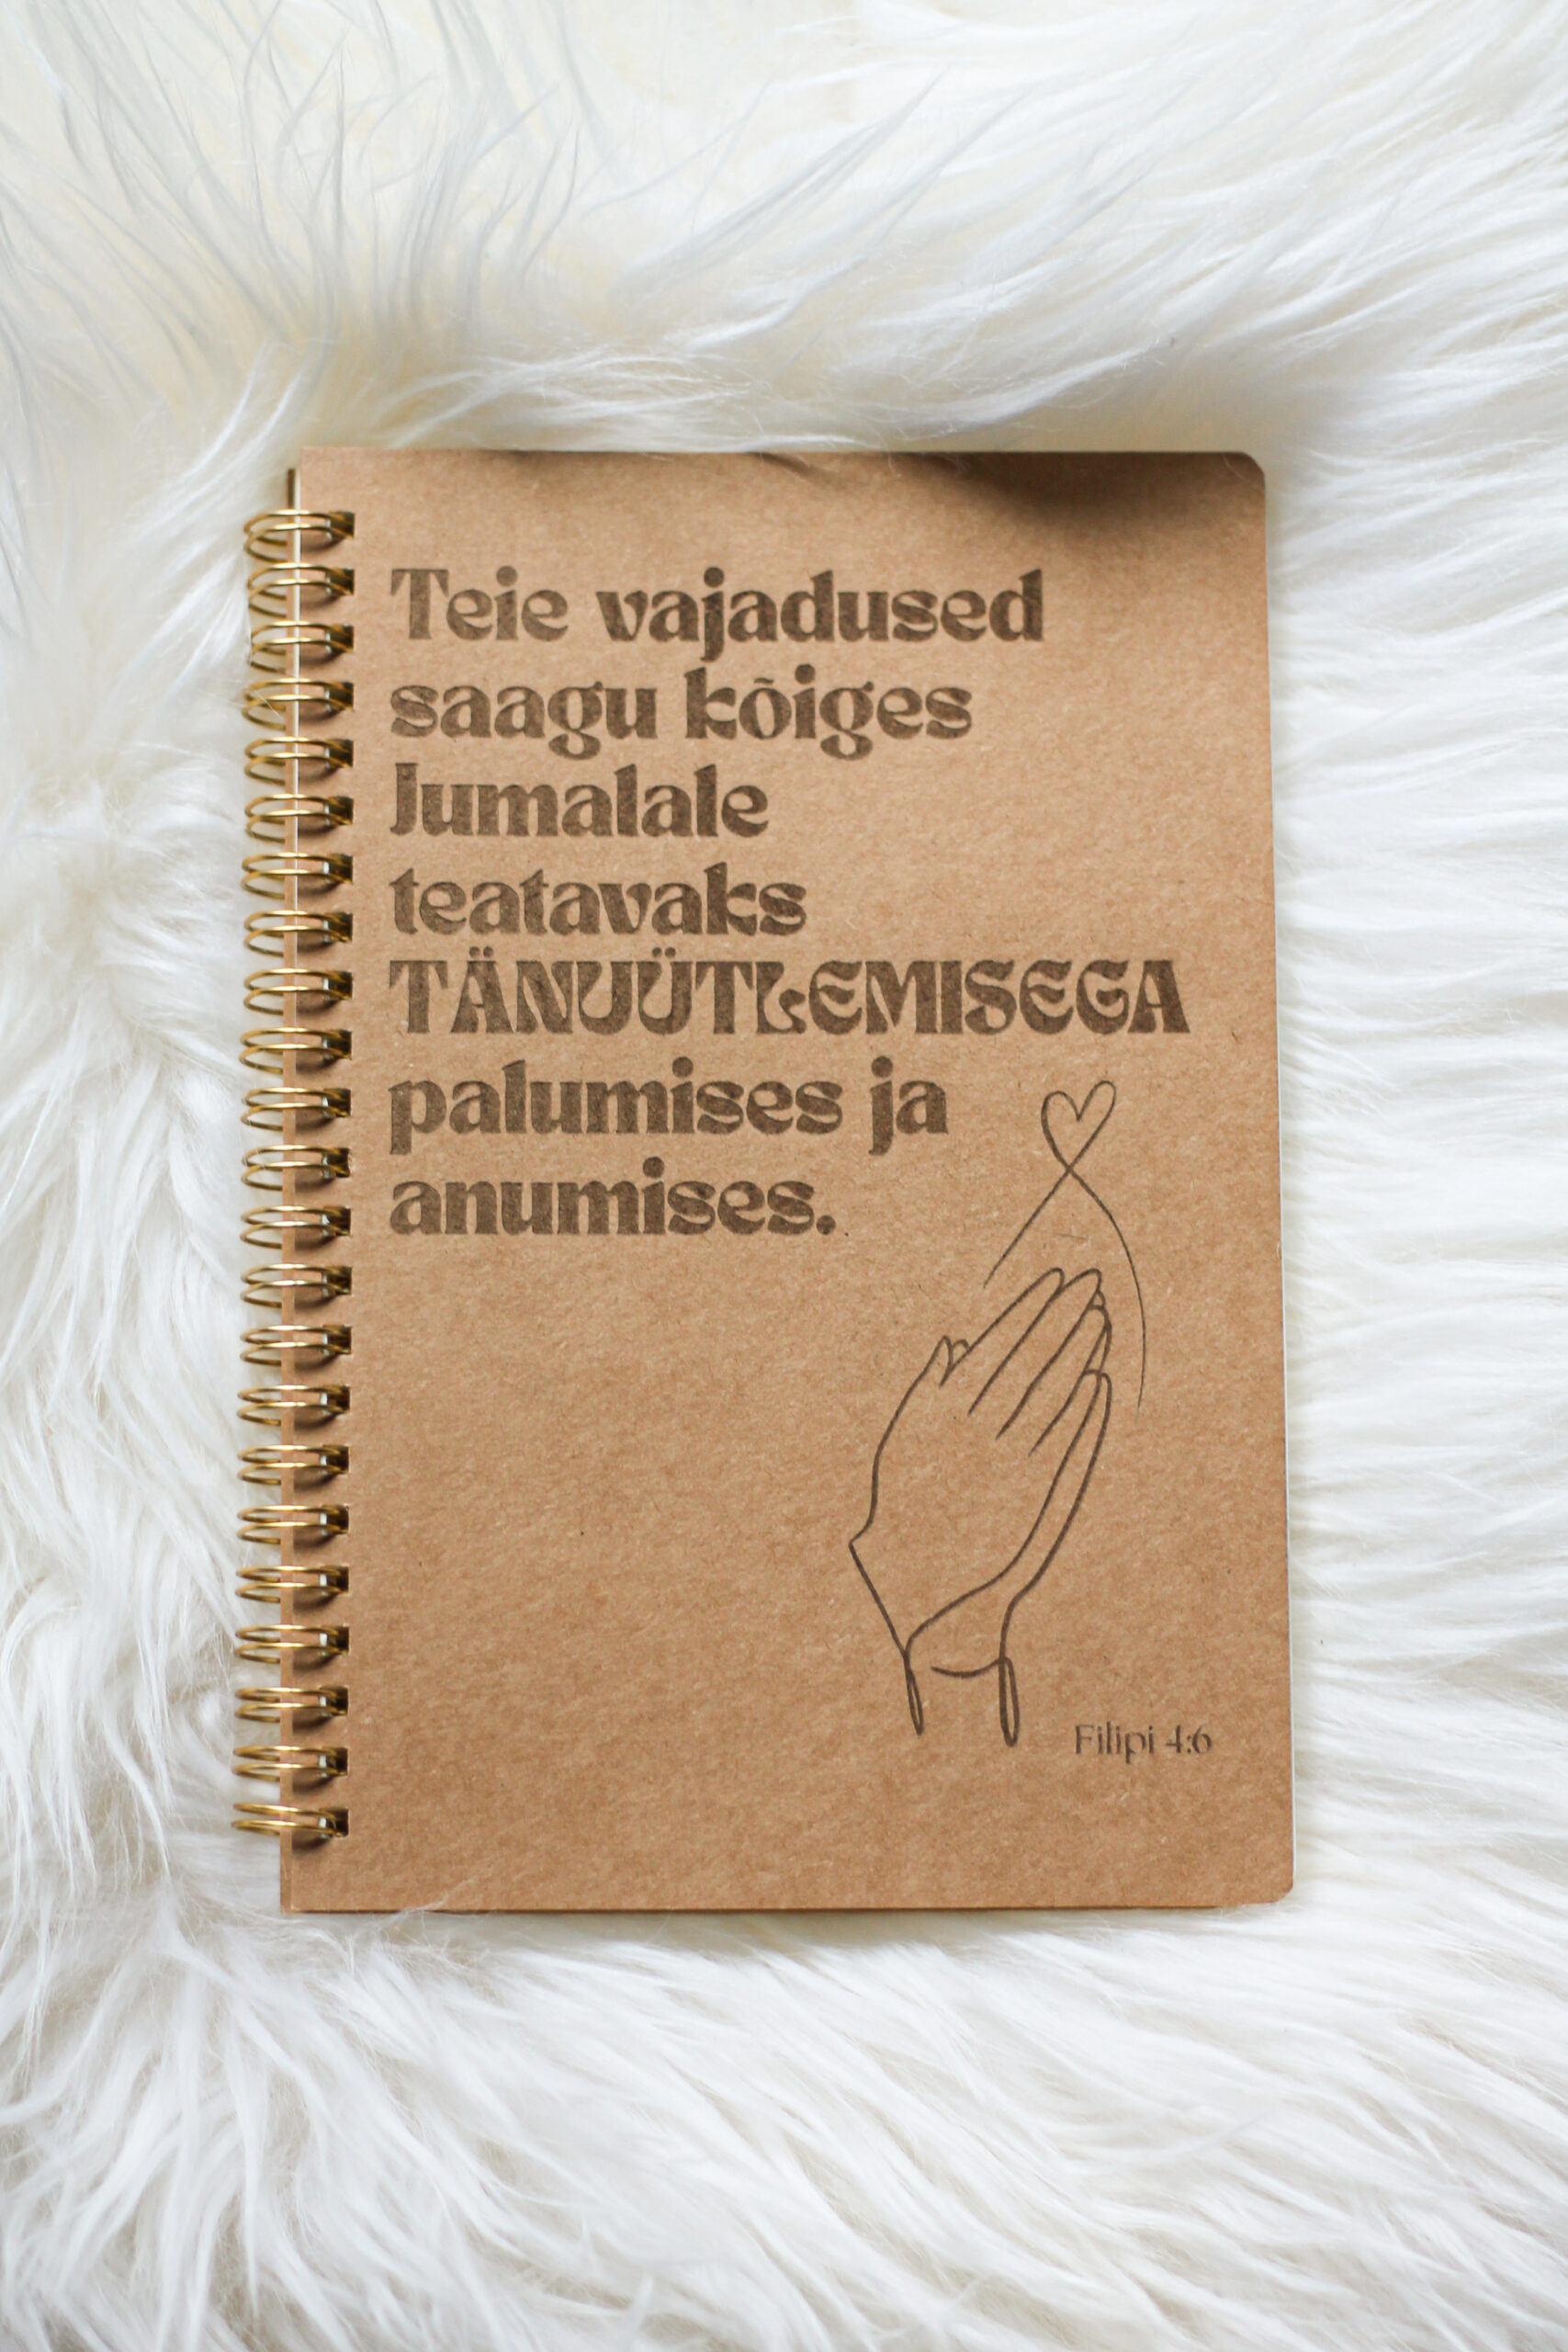 Teie vajadused
saagu kõiges
Jumalale
teatavaks
TÄNUÜTLEMISEGA
palumises ja
anumises.
Filipi 4:6